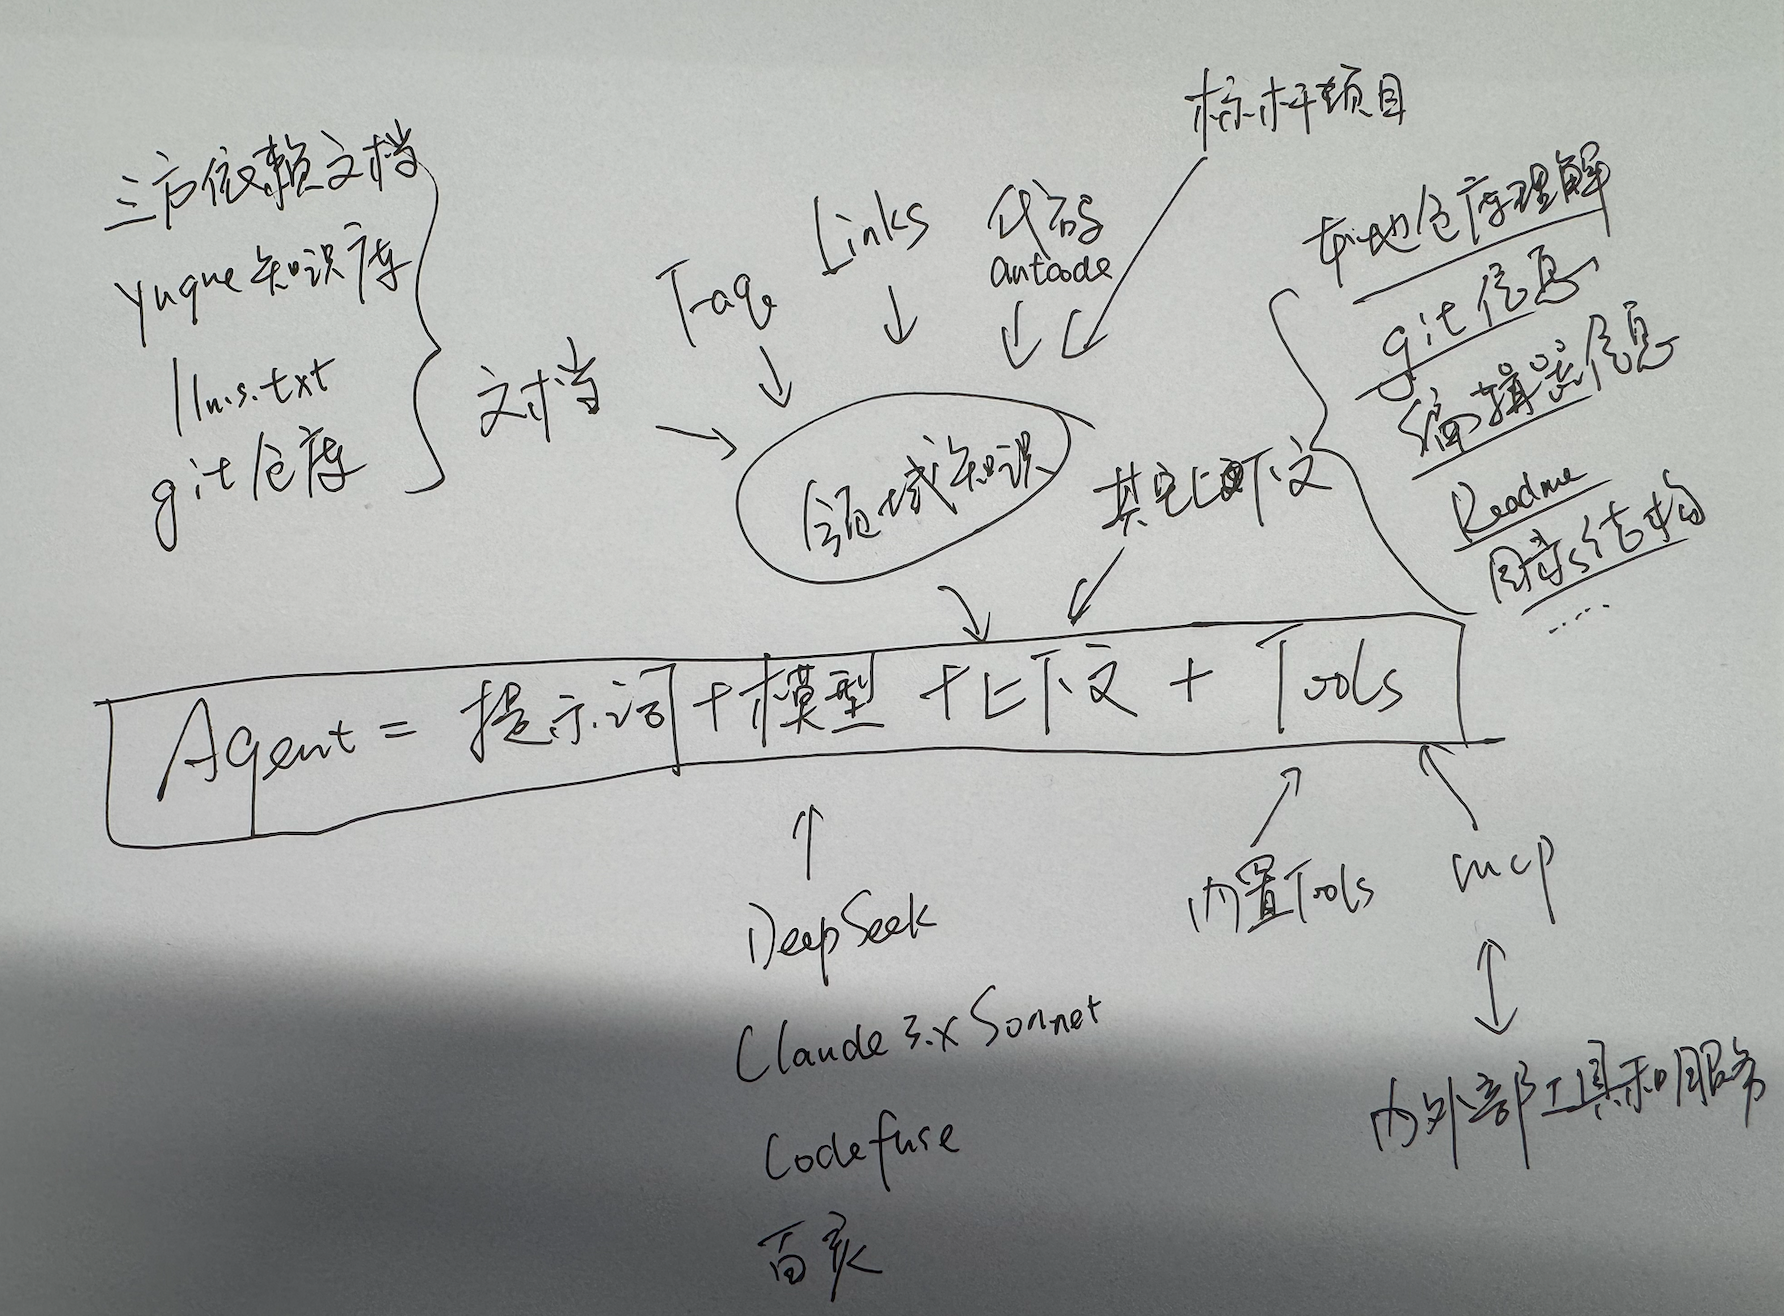 标杆项目
三方依赖文档
yuque知识库
llms.txt
git仓库
文档
Faq
Links
代码
antcode
本地仓库理解
git信息
编辑器信息
Readme
目录结构
......
领域知识
其它上下文
Agent = 提示词 + 模型 + 上下文 + Tools
DeepSeek
Claude 3.x Sonnet
Codefuse
百灵
内置Tools
mcp
内外部工具和服务